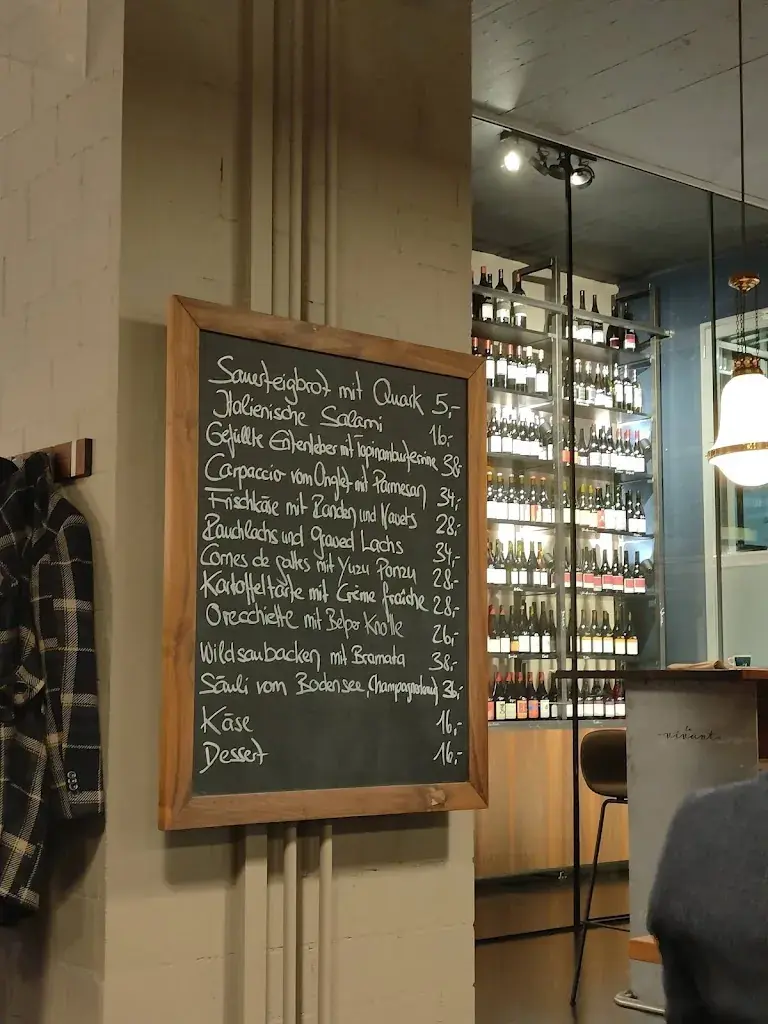 Sauerteigbrot mit Quark 5,-
Italienische Salami 16,-
Gefüllte Entenleber mit Topinamburterrine 38,-
Carpaccio vom Onglet mit Parmesan 34,-
Frischkäse mit Randen und Navets 28,-
Rauchlachs und Graved Lachs 34,-
Cornes de gattes mit Yuzu Ponzu 28,-
Kartoffeltarte mit Crème fraîche 28,-
Orecchiette mit Belper Knolle 26,-
Wildsaubacken mit Bramata 38,-
Säuli vom Bodensee, Champagnerkraut 36,-
Käse 16,-
Dessert 16,-
la
vivant